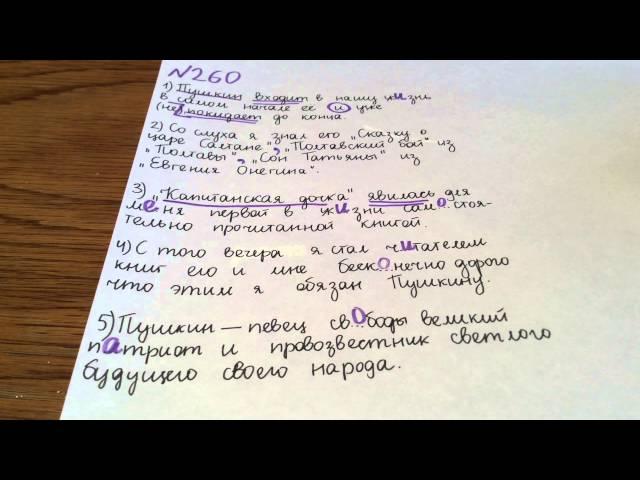 №260
1) Пушкин входит в нашу жизнь
в самом начале её и уже
(не)покидает до конца.
2) Со слуха я знал его „Сказку о
царе Салтане", „Полтавский бой" из
„Полтавы", „Сон Татьяны" из
„Евгения Онегина".
3) „Капитанская дочка" явилась для
меня первой в жизни само...стоя-
тельно прочитанной книгой.
4) С того вечера я стал читателем
книг его и мне беско...нечно дорого
что этим я обязан Пушкину.
5) Пушкин — певец св...ободы великий
патриот и провозвестник светлого
будущего своего народа.